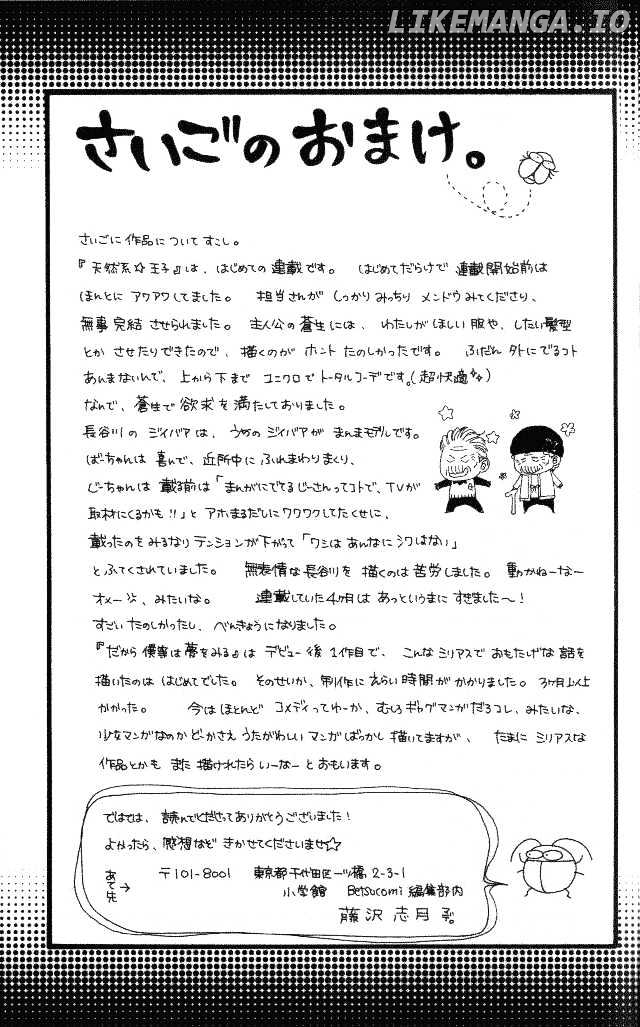 LIKEMANGA.IO
さいごのおまけ。
さいごに作品についてすこし。
『天然系☆王子』は、はじめての連載です。 はじめてだらけで連載開始前は
ほんとにアワアワしてました。 担当さんがしっかりみっちりメンドウみてくださり、
無事完結させられました。 主人公の蒼生には、わたしがほしい服や、したい髪型
とかさせたりできたので、描くのがホントたのしかったです。 ふだん外にでるコト
あんまないんで、上から下までユニクロでトータルコーデです。(超快適)
なんで、蒼生で欲求を満たしておりました。
長谷川のジイバアは、うちのジイバアがまんまモデルです。
ばーちゃんは喜んで、近所中にふれまわりまくり、
じーちゃんは載る前は「まんがにでてるじーさんってコトで、TVが
取材にくるかも!!」とアホまるだしにワクワクしてたくせに、
載ったのをみるなりテンションが下がって「ワシはあんなにシワはない」
とふてくされていました。 無表情な長谷川を描くのは苦労しました。動かねーなー
オメー、みたいな。 連載していた4ヶ月はあっというまにすぎました〜!
すごいたのしかったし、べんきょうになりました。
『だから僕等は夢をみる』はデビュー後1作目で、こんなシリアスでおもたげな話を
描いたのははじめてでした。そのせいか、制作にえらい時間がかかりました。3ヶ月以上
かかった。 今はほとんどコメディってゆーか、むしろギャグマンガだろコレ、みたいな、
少女マンガなのかどーかさえうたがわしいマンガばっかし描いてますが、 たまにシリアスな
作品とかもまた描けれたらいーなーとおもいます。
ではでは、読んでくださってありがとうございました!
よかったら、感想などきかせてくださいませ☆
あて先→ 〒101-8001 東京都千代田区一ツ橋2-3-1
小学館 Betsucomi編集部内
藤沢志月